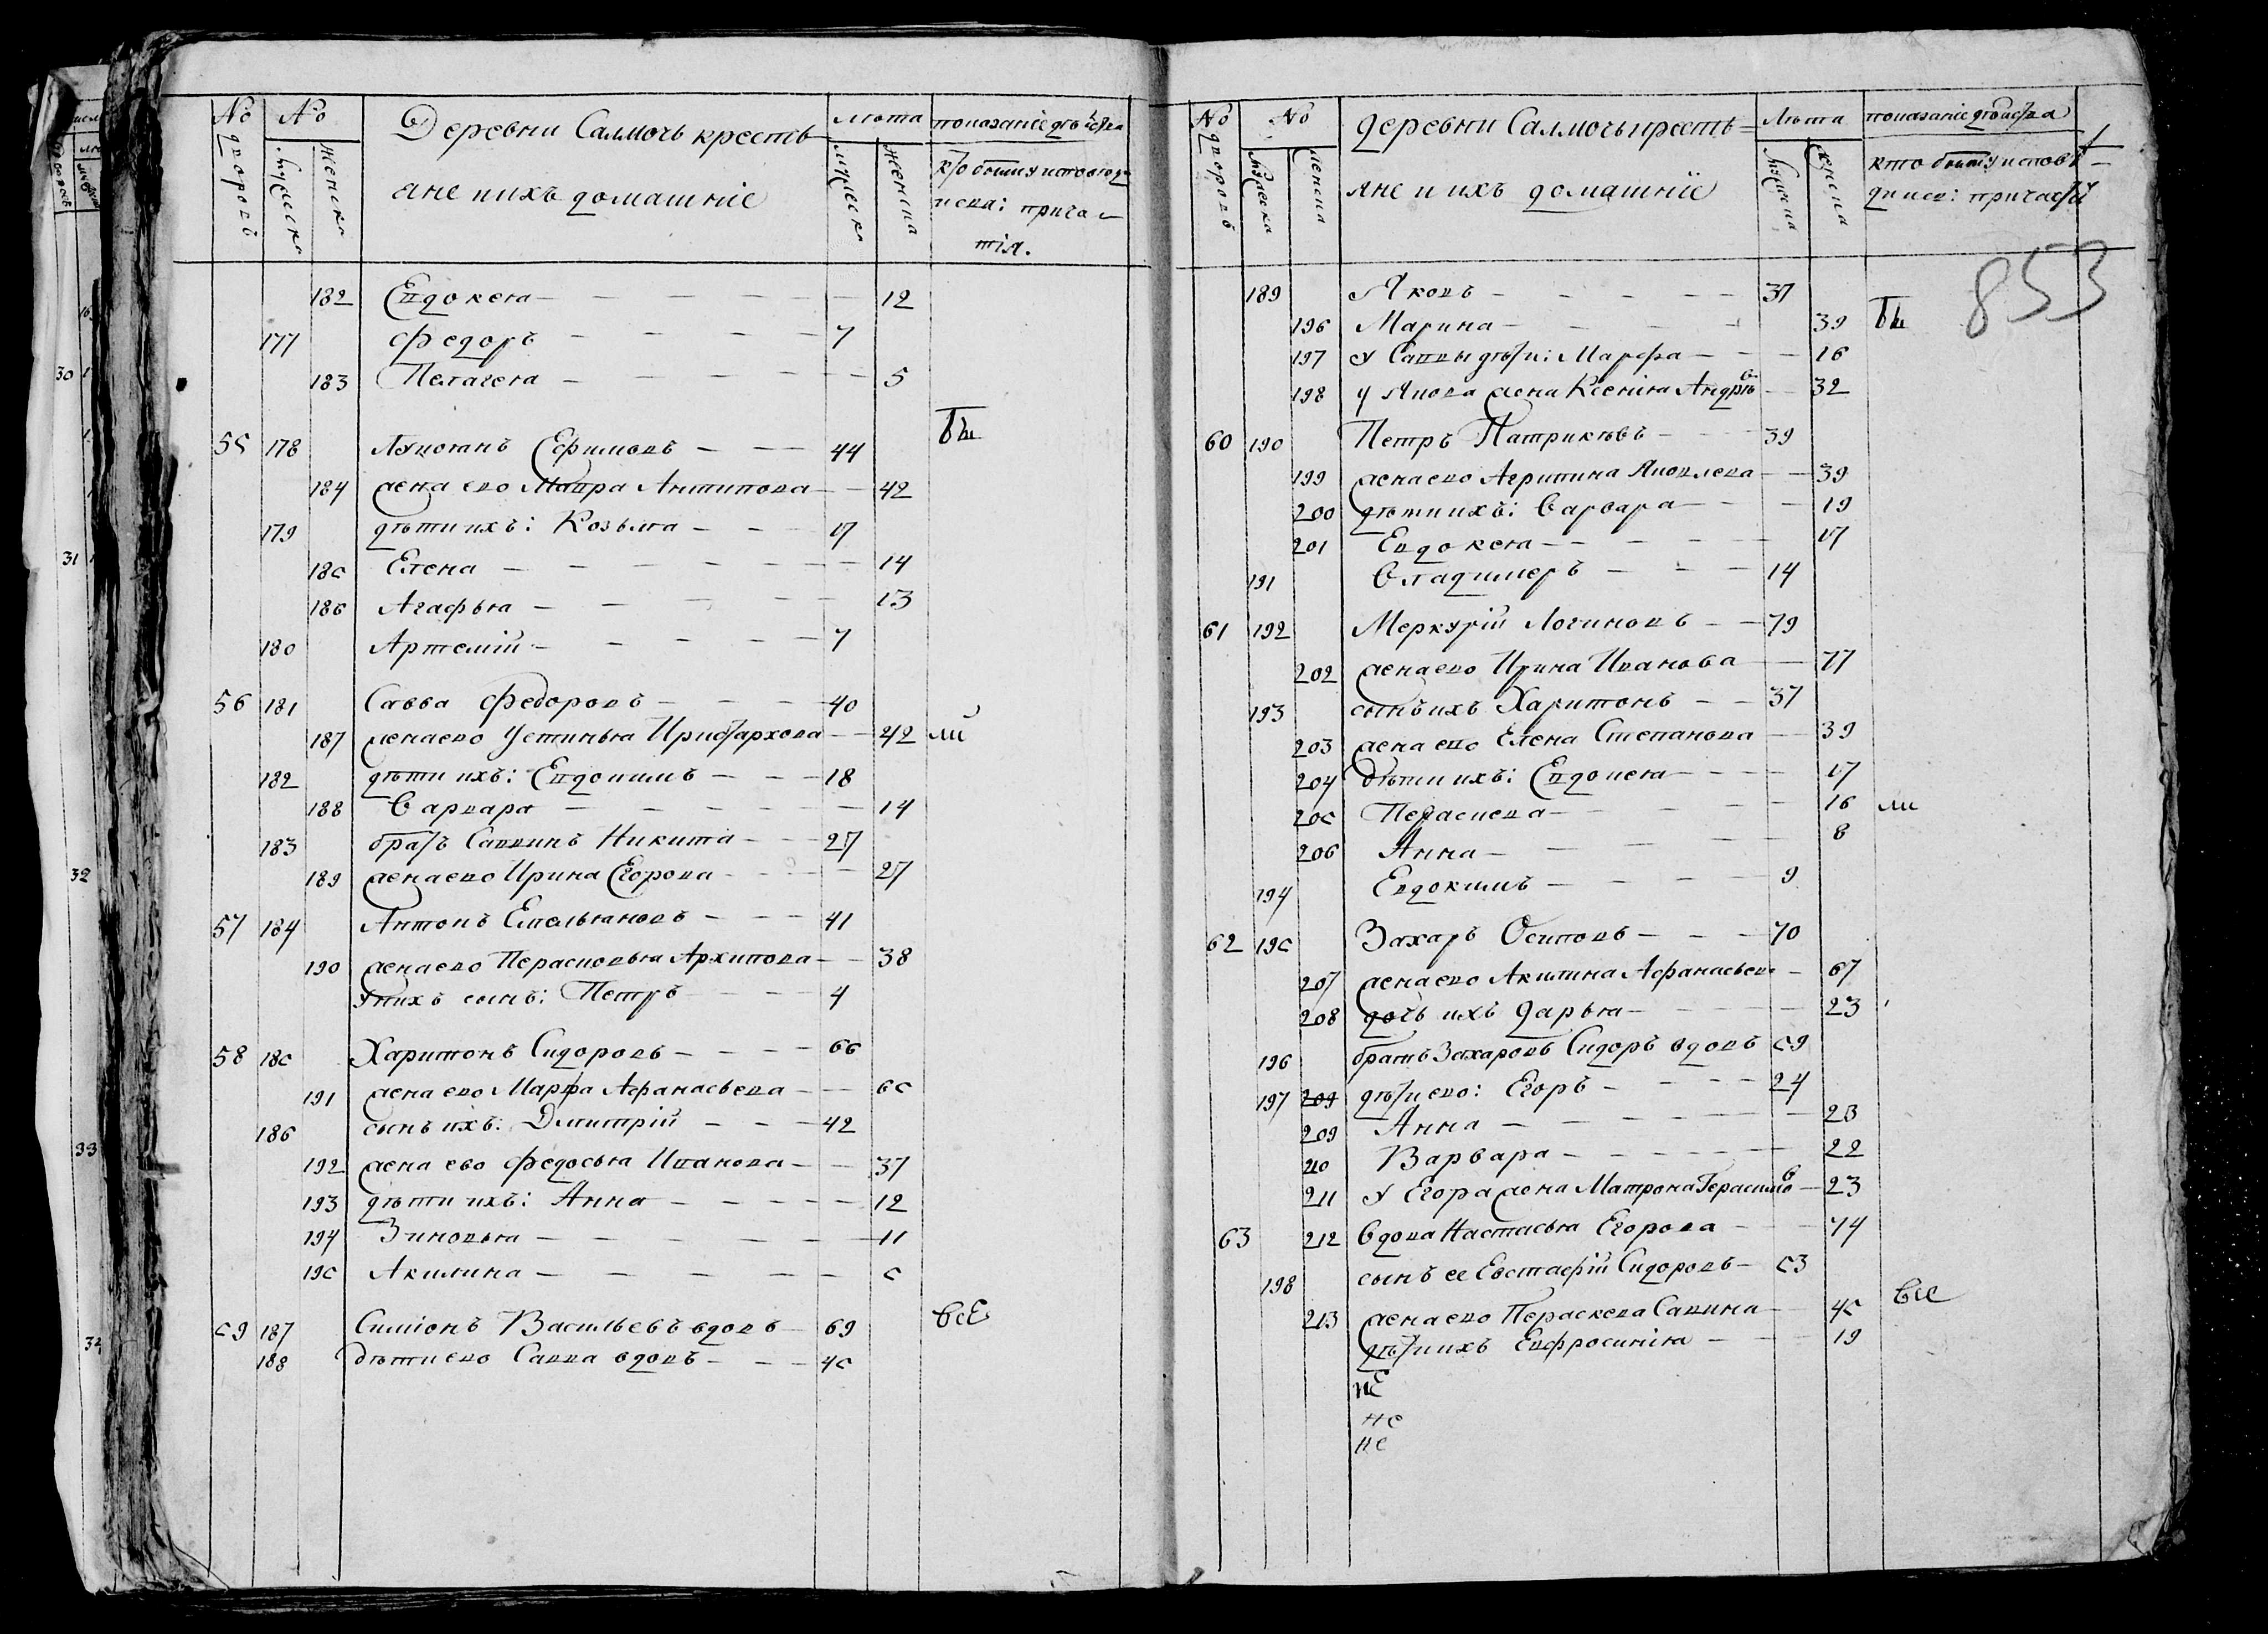 № дворовъ № Деревни Салмочь кресть лѣта показаніе дѣйства
мужеска женска яне и ихъ домашніе мужеска женска кто были у исповеди
и св: прича
тія.
182 Евдокея 12
177 Федоръ 7
183 Пелагея 5
бы
55 178 Лукоянъ Ефимовъ 44
184 жена ево Мавра Антипова 42
179 дѣти ихъ: Козьма 17
185 Елена 14
186 Агафья 13
180 Артемій 7
56 181 Савва Федоровъ 40
187 жена ево Устинья Ириstархова 42 ли
182 дѣти ихъ: Евдокимъ 18
188 Варвара 14
183 братъ Саввинъ Никита 27
189 жена ево Ирина Егорова 27
57 184 Антонъ Емельяновъ 41
190 жена ево Перасковья Архипова 38
У нихъ сынъ: Петръ 4
58 185 Харитонъ Сидоровъ 66
191 жена ево Марфа Афанасьева 65
186 сынъ ихъ: Дмитрій 42
192 жена ево Федосья Иванова 37
193 дѣти ихъ: Анна 12
194 Зиновья 11
195 Акилина 5
59 187 Симіонъ Васильевъ вдовъ 69 всЕ
188 дѣти ево Савва вдовъ 45
№ дворовъ № деревни Салмочь кресть лѣта показаніе дѣйства
мужеска женска яне и ихъ домашніе мужеска женска кто были у исповѣ
ди и св: причастія
853
189 Яковъ 37
196 Марина 39 бы
197 У Саввы дѣти: Марфа 16
198 У Якова жена Ксенія Андрѣв 32
60 190 Петръ Патрикѣвъ 39
199 жена ево Агрипина Яковлева 39
200 дѣти ихъ: Варвара 19
201 Евдокея 17
191 Владимеръ 14
61 192 Меркурій Логиновъ 79
202 жена ево Ирина Иванова 77
193 сынъ ихъ Харитонъ 37
203 жена ево Елена Степанова 39
204 дѣти ихъ: Евдокея 17
205 Пераскева 16 ли
206 Анна 8
194 Евдокимъ 9
62 195 Захаръ Осиповъ 70
207 жена ево Акилина Афанасьева 67
208 дочь ихъ Дарья 23
196 братъ Захаровъ Сидоръ вдовъ 59
197 209 дѣти ево: Егоръ 24
209 Анна 23
210 Варвара 22
211 У Егора жена Матрона Герасимов 23
63 212 Вдова Настасья Егорова 74
198 сынъ ее Евстафій Сидоровъ 53
213 жена ево Пераскева Савина 45 все
дѣти ихъ Евфросинія 19
нЕ
не
не